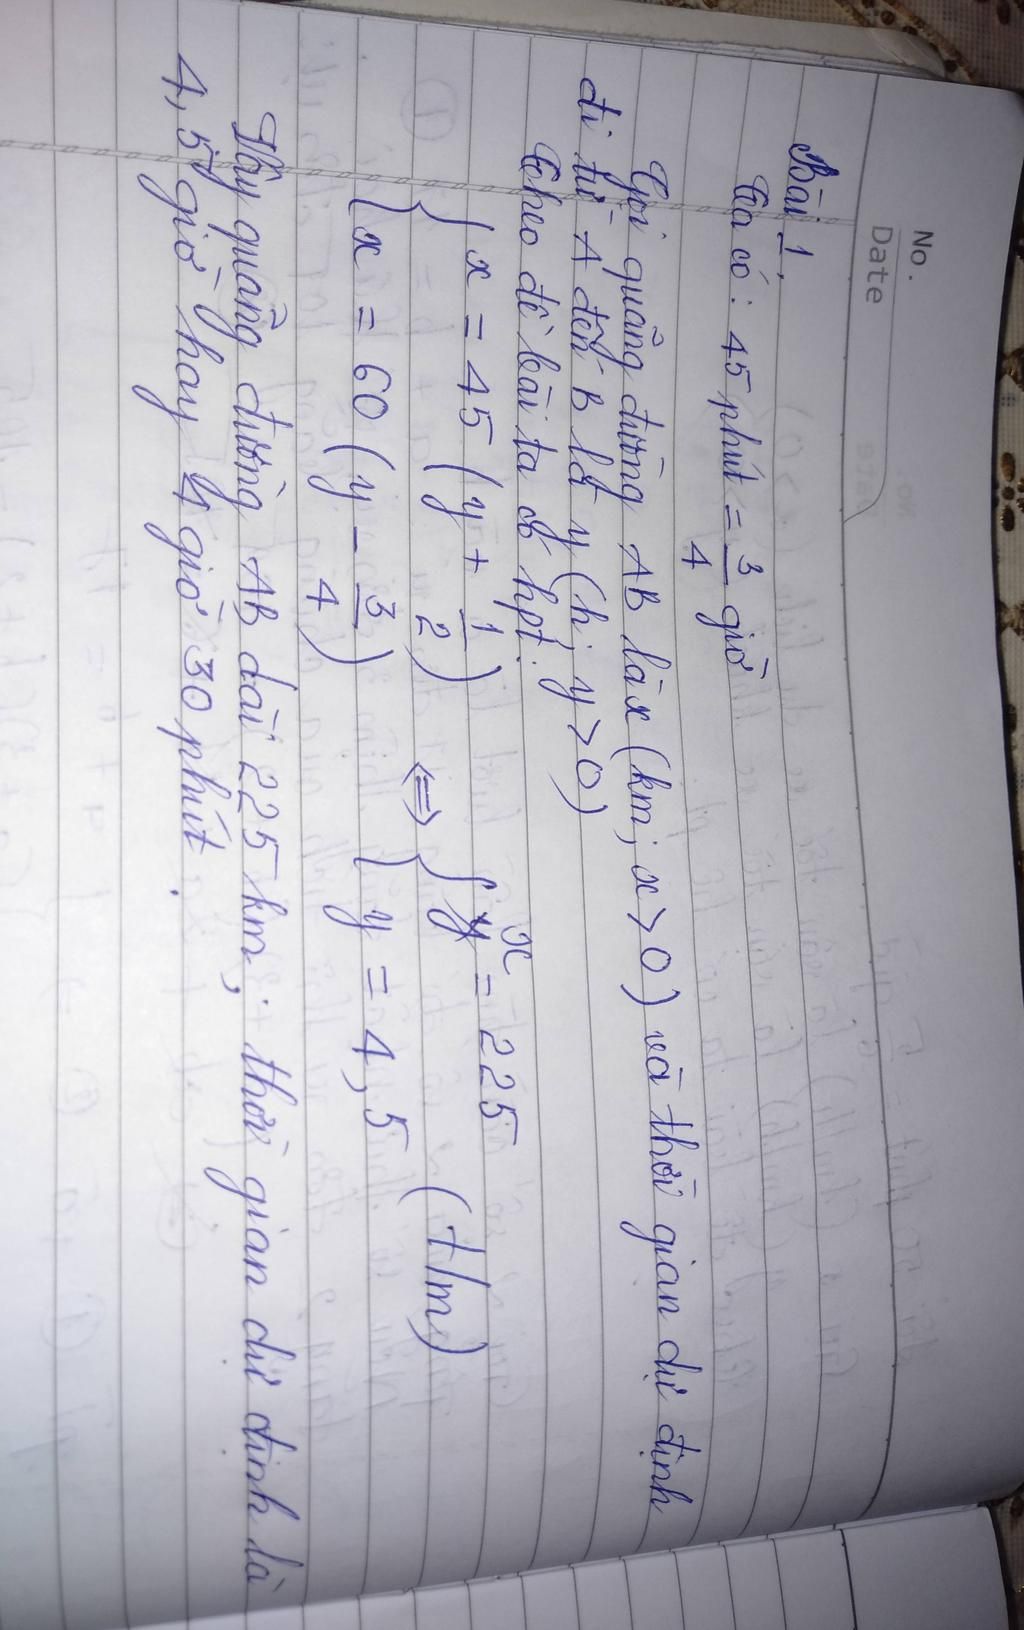 No.
Date
Bài 1.
Ta có: 45 phút = 3/4 giờ
Gọi quãng đường AB là x (km; x > 0) và thời gian dự định
đi từ A đến B là y (h; y > 0)
Theo đề bài ta có hpt:
{ x = 45 (y + 1/2)
{ x = 60 (y - 3/4) <=> { x = 225
{ y = 4,5 (t/m)
Vậy quãng đường AB dài 225 km; thời gian dự định là
4,5 giờ hay 4 giờ 30 phút.